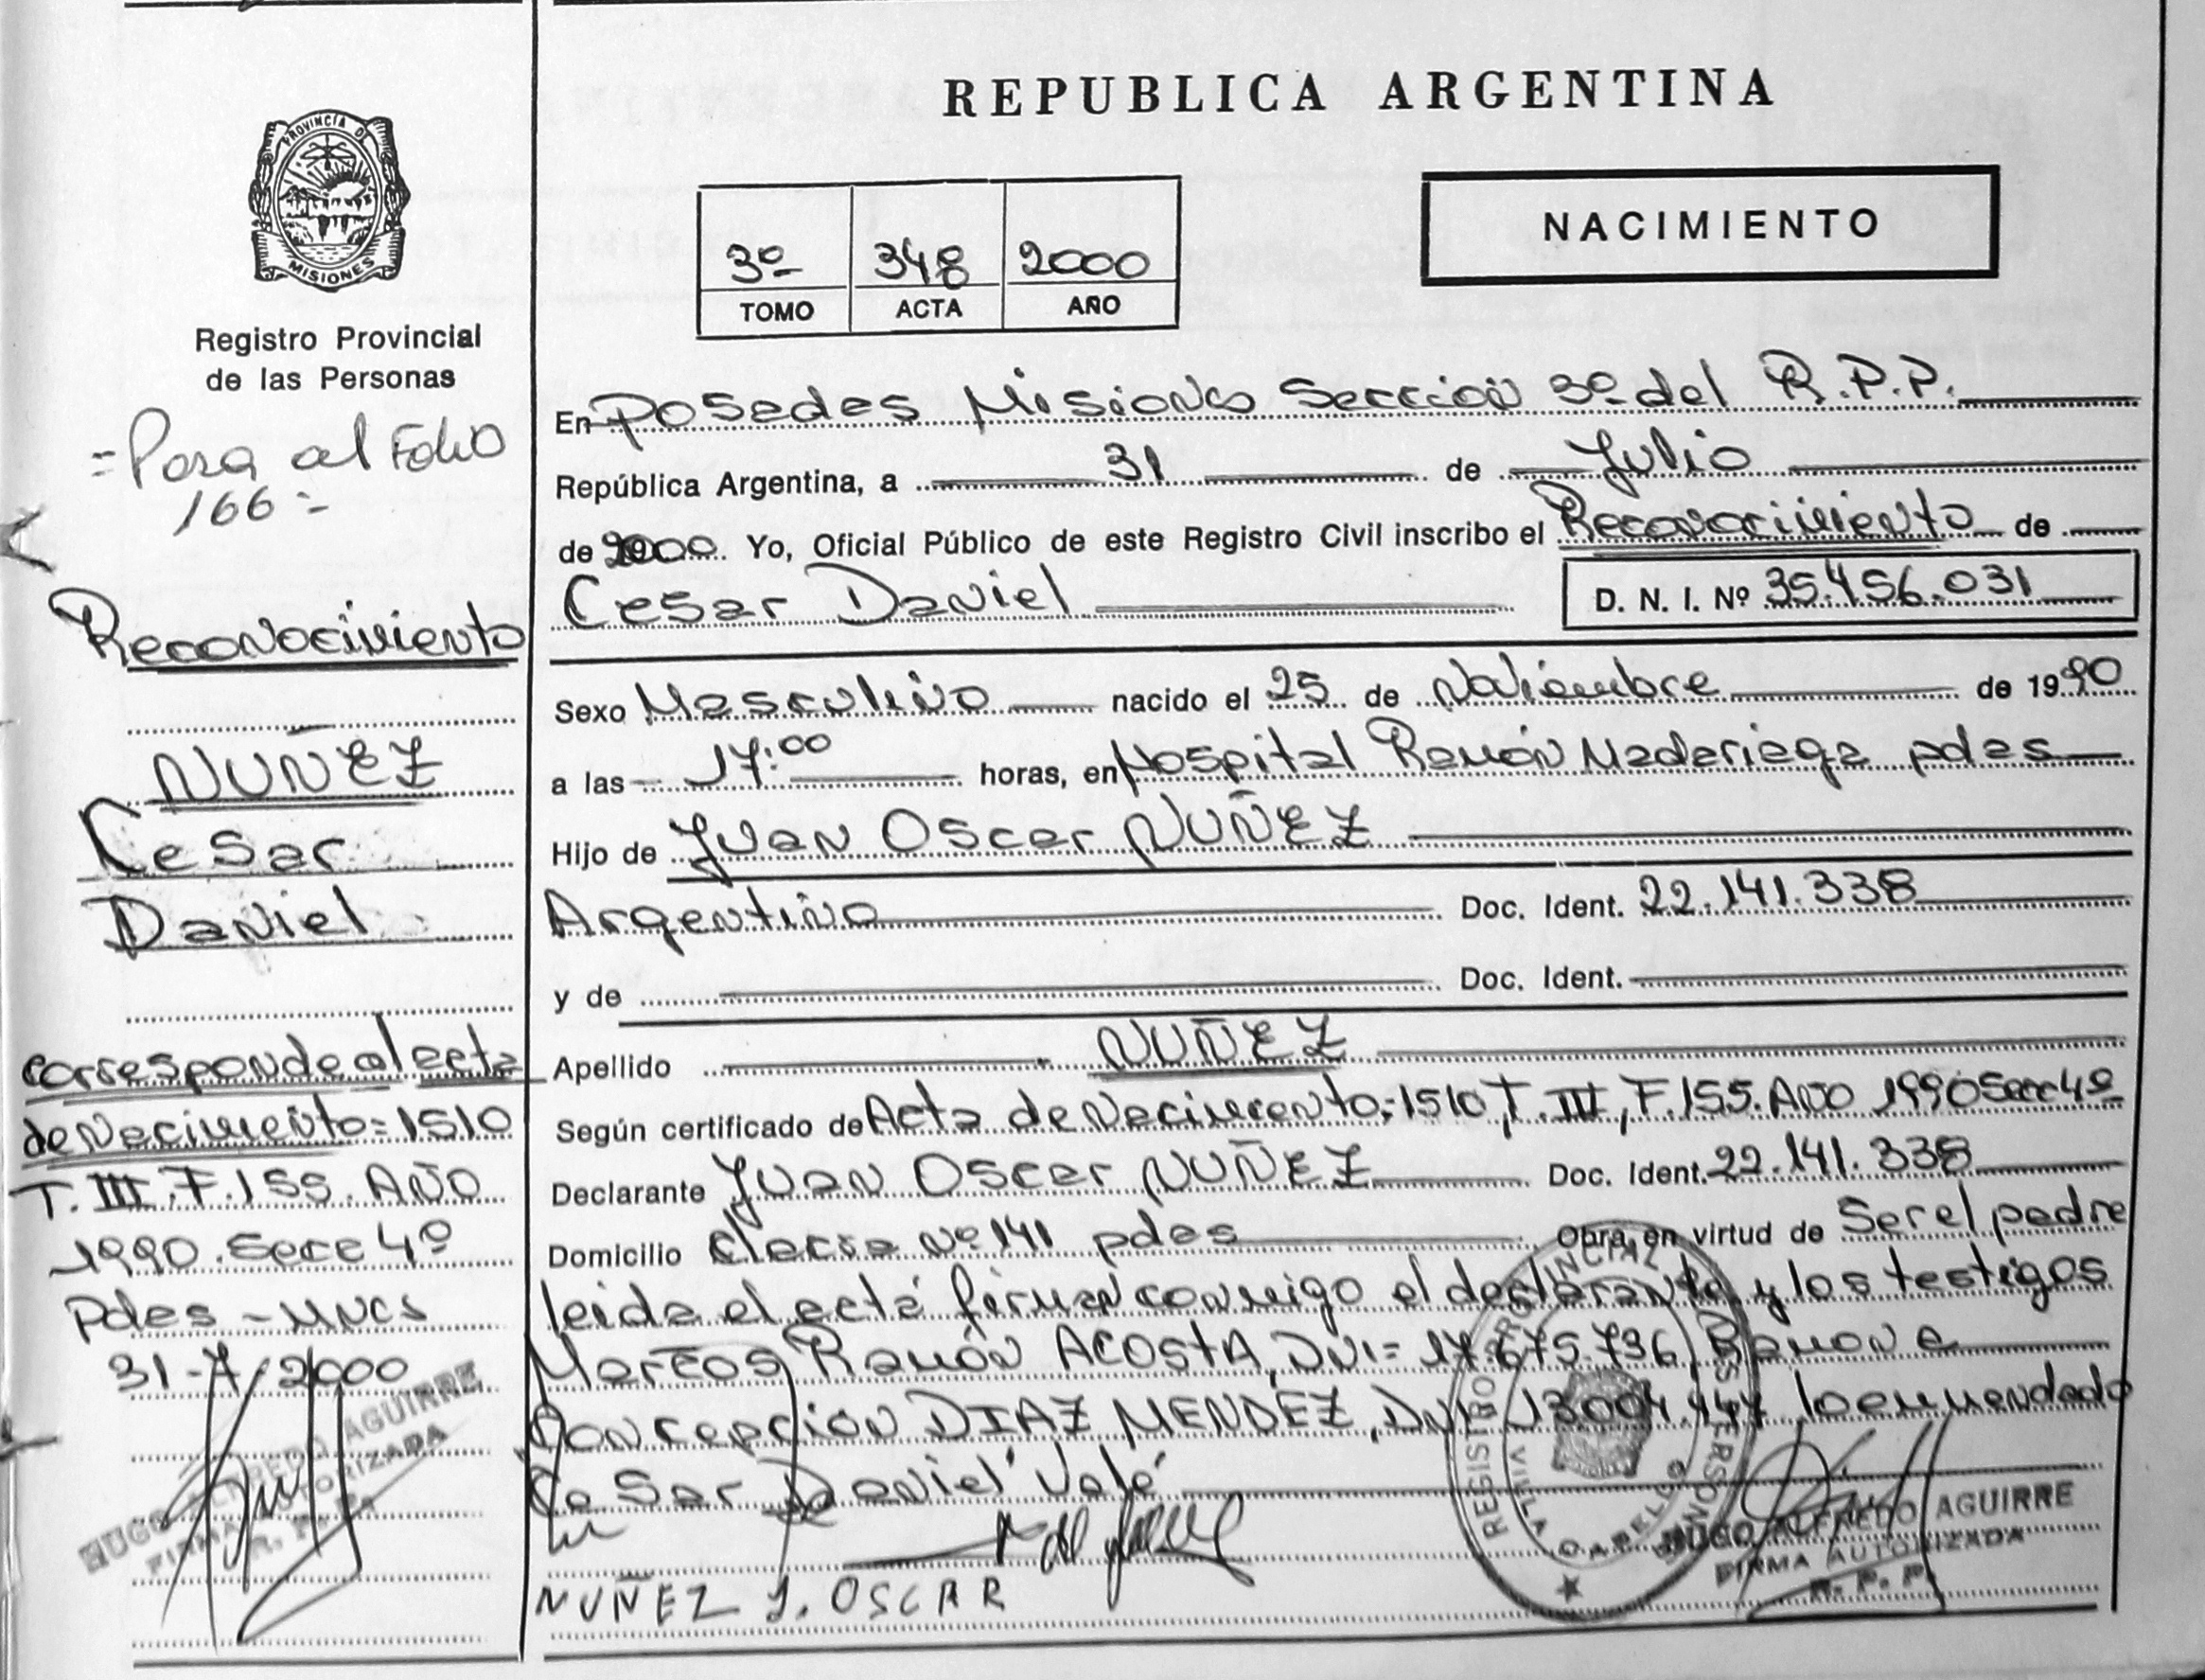 REPUBLICA ARGENTINA
PROVINCIA DE
MISIONES
Registro Provincial
de las Personas
NACIMIENTO
3º 348 2000
TOMO ACTA AÑO
=Pasa al Folio
166=
En Posadas Misiones Sección 3º del R.P.P.
República Argentina, a 31 de Julio
de 2000 Yo, Oficial Público de este Registro Civil inscribo el Reconocimiento de
Cesar Daniel D. N. I. Nº 35.456.031
Sexo Masculino nacido el 25 de Noviembre de 1990
a las 17:00 horas, en Hospital Ramón Madariaga pdas
Hijo de Juan Oscar NUÑEZ
Argentino Doc. Ident. 22.141.338
y de Doc. Ident.
Apellido NUÑEZ
Según certificado de Acta de Nacimiento=1510 T.III, F.155. Año 1990 Secc 4º
Declarante Juan Oscar NUÑEZ Doc. Ident. 22.141.338
Domicilio Nº 141 pdas Obra en virtud de Ser el padre
leida el acta firman conmigo el declarante y los testigos
Marcos Ramón ACOSTA, DNI= 17.675.736, Ramona
Concepción DIAZ MENDEZ, DNI 13004.447 lo enmendado
Cesar Daniel Vale
NUÑEZ J. OSCAR
Reconocimiento
NUÑEZ
Cesar
Daniel
Corresponde al acta
de Nacimiento=1510
T. III. F.155. AÑO
1990. Secc 4º
Pdas - MNES
31-7/2000
HUGO ALFREDO AGUIRRE
FIRMA AUTORIZADA
R. P. P.
REGISTRO PROVINCIAL PERSONAS
VILLA CABELLO
HUGO ALFREDO AGUIRRE
FIRMA AUTORIZADA
R. P. P.